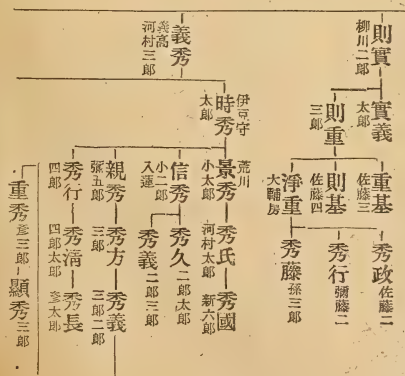 則實 柳川二郎
實義 太郎
則重 三郎
重基 佐藤三
則基 佐藤四
淨重 大輔房
秀政 佐藤二
秀行 彌藤二
秀藤 孫三郎
義秀 義高 河村三郎
時秀 伊豆守 太郎
景秀 荒川 小太郎
秀氏 河村太郎
秀國 新六郎
信秀 小二郎 入蓮
秀久 二郎太郎
秀義 二郎三郎
親秀 張五郎
秀方 三郎
秀義 三郎二郎
秀行 四郎
秀淸 四郎太郎
秀長 彥太郎
重秀 彥三郎
顯秀 三郎